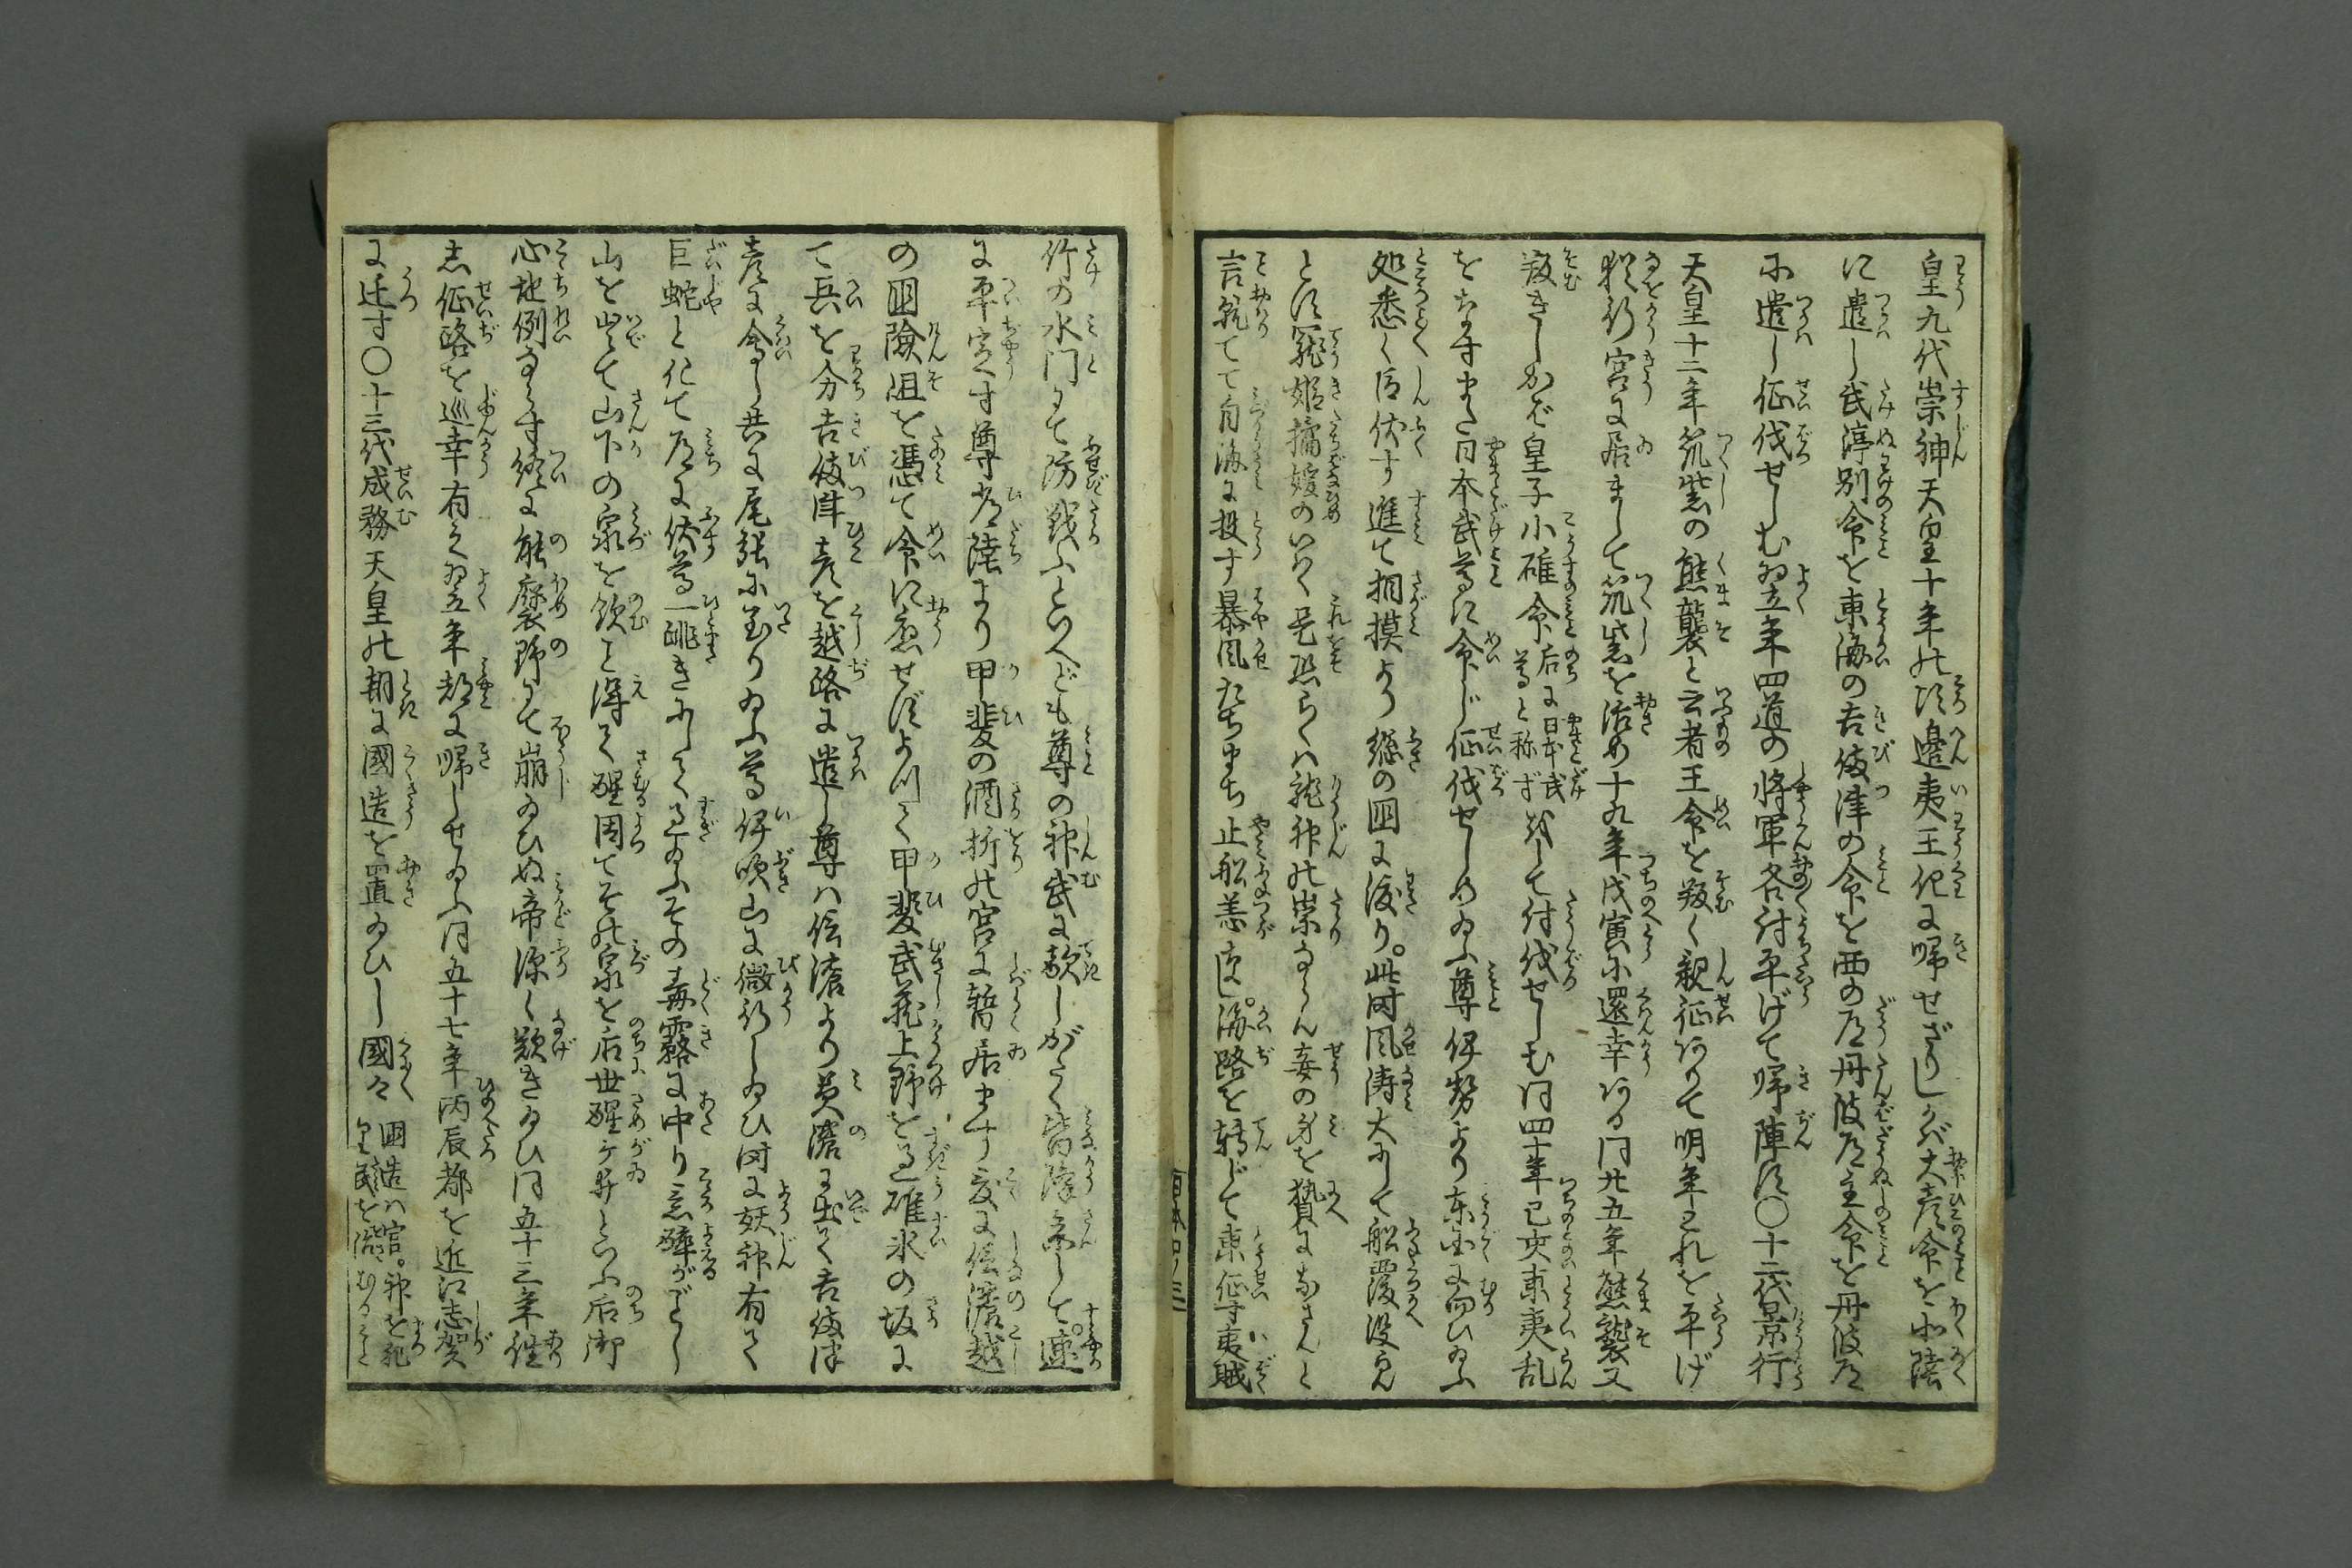 皇九代崇神天皇十年の頃邊夷王化に歸せざりしかば大彦命を北陸
に遣し武渟別命を東海の吉備津の命を西の道丹波道主命を丹波道
に遣し征伐せしむ翌年四道の将軍各討平げて帰陣す〇十二代景行
天皇十二年筑紫の熊襲と云者王命を叛く親征ありて明年これを平げ
猶行宮に居まして筑紫を治め十九年戊寅に還幸ある同廿五年熊襲又
叛きしかば皇子小碓命后に日本武尊と称ずをして討伐せしむ同四十年己亥東夷乱
をなすまた日本武尊に命じ征伐せしめ給ふ尊伊勢より東国に向ひ給ふ
処悉く臣伏す進て相摸より総の国に渡り。此時風涛大にして船覆没せん
とす寵姫橘媛のいはく是恐らくは龍神の祟ならん妾の身を贄になさんと
言訖てて自海に投す暴風たちまち止船恙なし。海路を転じて東征す夷賊
竹の水門にて防戦ふといへども尊の神武に敵しがたく皆降参して。速
に平定す尊常陸より甲斐の酒折の宮に暫居ます爰に信濃越
の国險阻を憑て命に應せずよつて甲斐武蔵上野を過碓氷の坂に
て兵を分吉備津彦を越路に遣し尊は信濃より美濃に出て吉備津
彦に會し共に尾張に到り給ふ尊伊吹山に微行し給ひ時に妖神有て
巨蛇と化て道に伏尊一跳きにして過給ふその毒霧に中り意酔がごとし
山を出て山下の泉を飲ことを得て醒因てその泉を后世醒ヶ井といふ后御
心地例ならす終に能褒野にて崩給ひぬ帝深く歎き給ひ同五十三年往
志征路を巡幸有之翌年都に帰しせ給ふ同五十七年丙辰都を近江志賀
に迁す〇十三代成務天皇の朝に國造を置給ひし國々 国造は官。神を祀り民を治むる